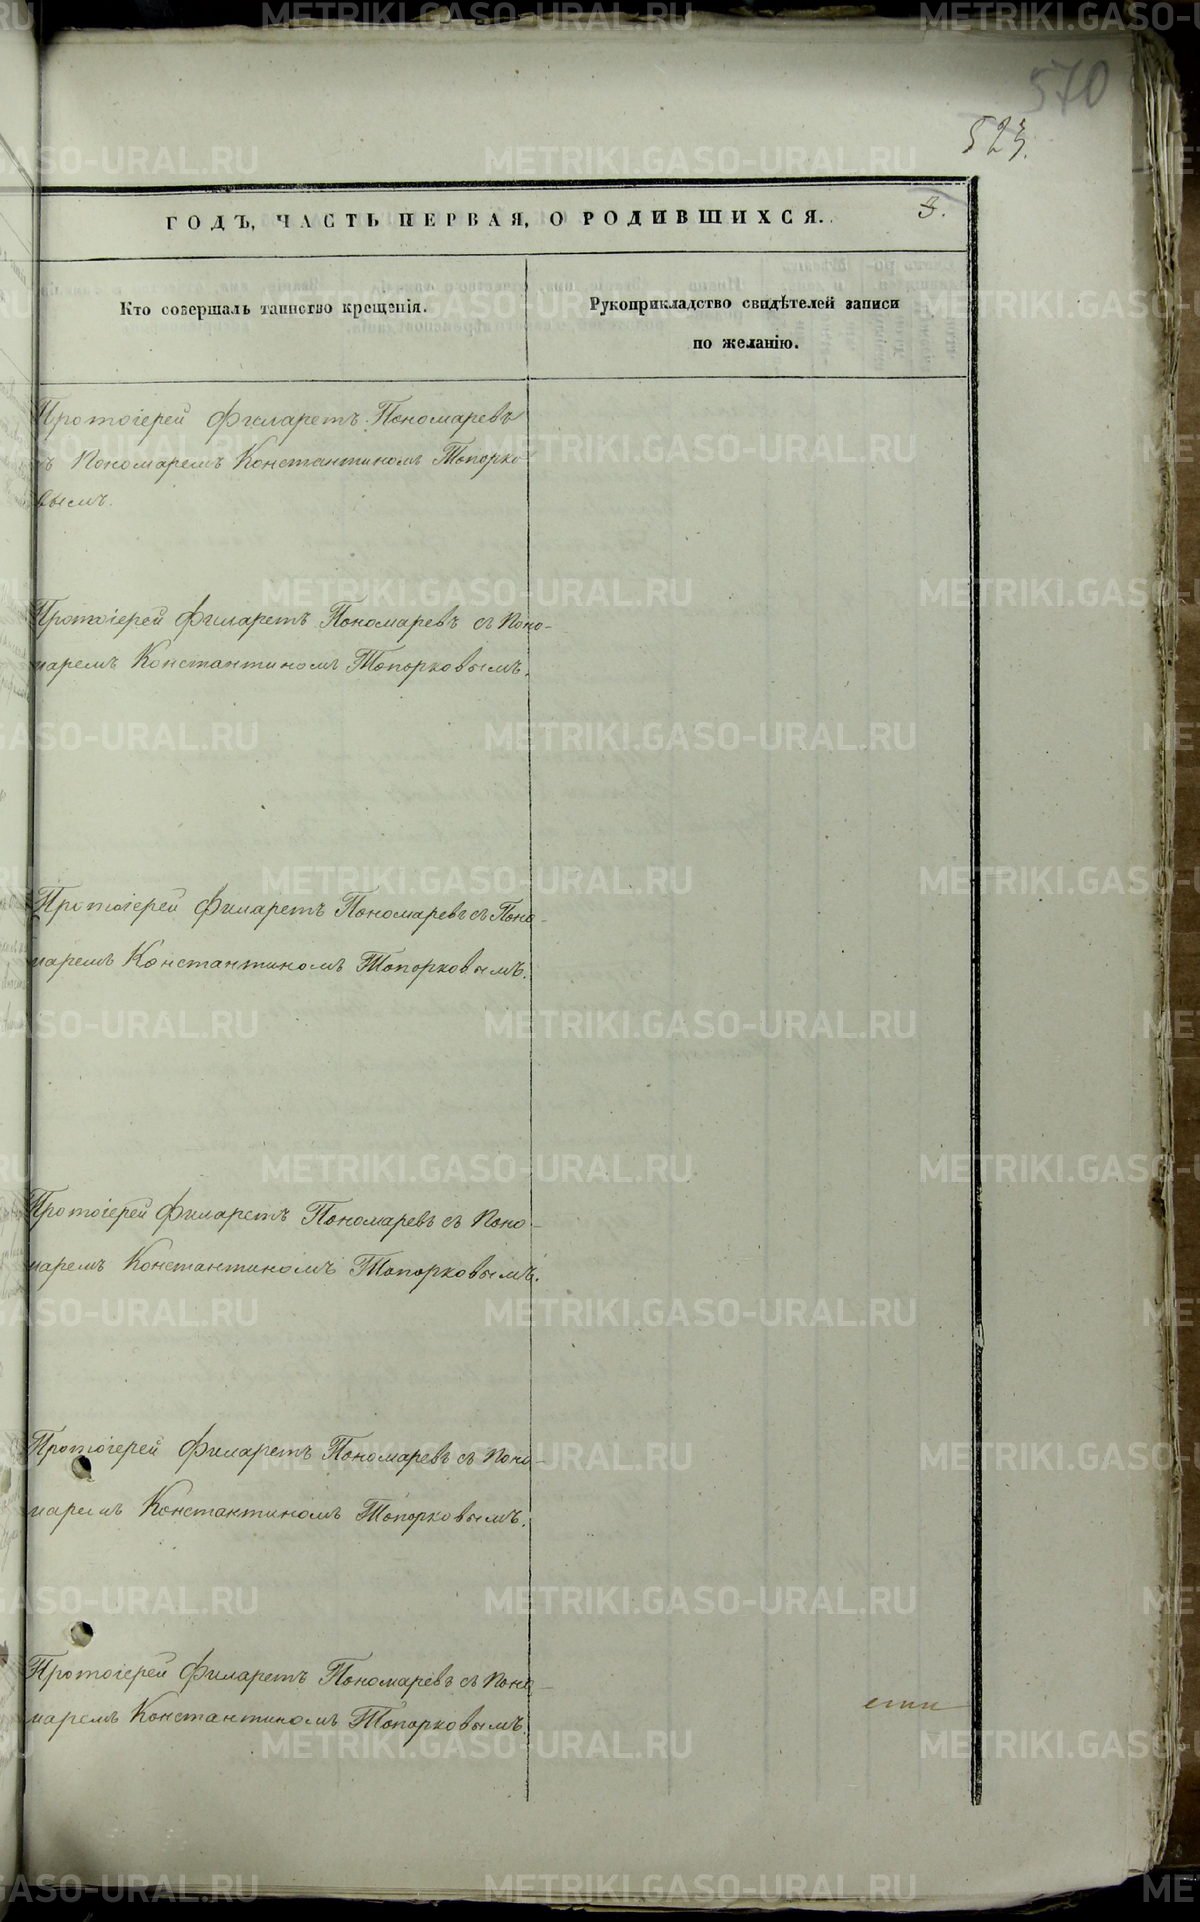 570
523.
ГОДЪ, ЧАСТЬ ПЕРВАЯ, О РОДИВШИХСЯ.
3.
Кто совершалъ таинство крещенія.
Рукоприкладство свидѣтелей записи
по желанію.
Протоіерей Филаретъ Пономаревъ
съ Пономаремъ Константиномъ Топорко
вымъ.
Протоіерей Филаретъ Пономаревъ съ Поно-
маремъ Константиномъ Топорковымъ.
Протоіерей Филаретъ Пономаревъ съ Поно-
маремъ Константиномъ Топорковымъ.
Протоіерей Филаретъ Пономаревъ съ Поно-
маремъ Константиномъ Топорковымъ.
Протоіерей Филаретъ Пономаревъ съ Поно-
маремъ Константиномъ Топорковымъ.
Протоіерей Филаретъ Пономаревъ съ Поно-
маремъ Константиномъ Топорковымъ.
METRIKI.GASO-URAL.RU